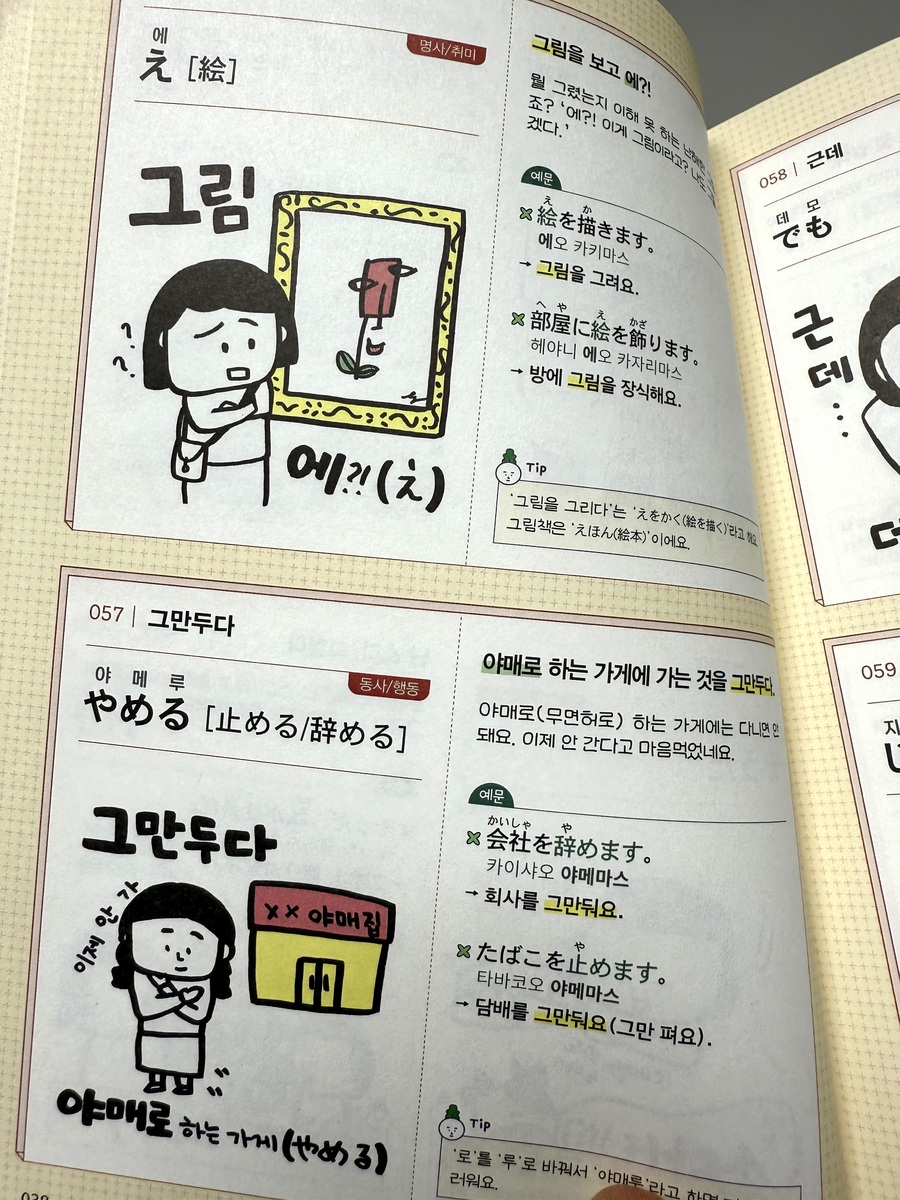 에
え [絵]
명사/취미
그림
? ?
에?! (え)
그림을 보고 에?!
뭘 그렸는지 이해 못 하는 난해한
죠? '에?! 이게 그림이라고? 나도
겠다.'
예문
え か
絵を描きます。
에오 카키마스
→ 그림을 그려요.
へ や え かざ
部屋に絵を飾ります。
헤야니 에오 카자리마스
→ 방에 그림을 장식해요.
Tip
'그림을 그리다'는 'えをかく(絵を描く)'라고 해요
그림책은 'えほん(絵本)'이에요.
057 | 그만두다
야 메 루
やめる [止める/辞める]
동사/행동
그만두다
이제 안 가
×× 야매집
야매로 하는 가게 (やめる)
야매로 하는 가게에 가는 것을 그만두다.
야매로(무면허로) 하는 가게에는 다니면 안
돼요. 이제 안 간다고 마음먹었네요.
예문
かいしゃ や
会社を辞めます。
카이샤오 야메마스
→ 회사를 그만둬요.
や
たばこを止めます。
타바코오 야메마스
→ 담배를 그만둬요(그만 펴요).
Tip
'로'를 '루'로 바꿔서 '야매루'라고 하면
러워요.
058 | 근데
데 모
でも
근
데
...
059
지